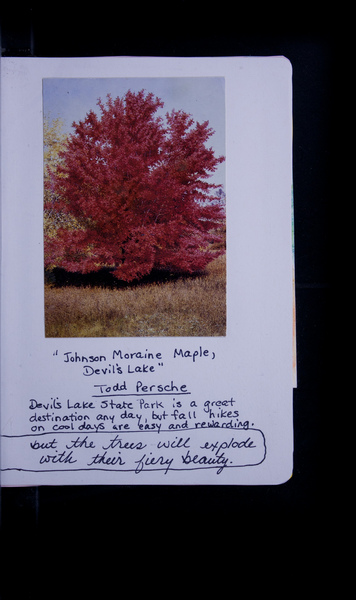 "Johnson Moraine Maple,
Devil's Lake"
Todd Persche
Devil's Lake State Park is a great
destination any day, but fall hikes
on cool days are easy and rewarding.
but the trees will explode
with their fiery beauty.